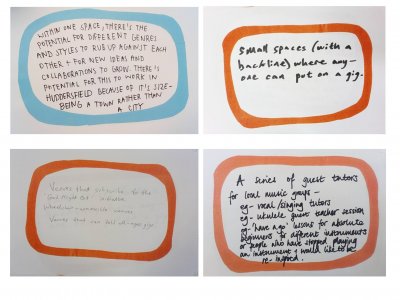 WITHIN ONE SPACE, THERE'S THE
POTENTIAL FOR DIFFERENT GENRES
AND STYLES TO RUB UP AGAINST EACH
OTHER + FOR NEW IDEAS AND
COLLABORATIONS TO GROW. THERE IS
POTENTIAL FOR THIS TO WORK IN
HUDDERSFIELD BECAUSE OF IT'S SIZE -
BEING A TOWN RATHER THAN
A CITY
small spaces (with a
backline) where any-
one can put on a gig.
Venues that subscribe to the
venues
Venues that can tell all-ages gigs
A series of guest tutors
for local music groups -
eg - vocal/singing tutors
eg - ukulele guest teacher session
eg - 'have a go' lessons for absolute
beginners for different instruments
or people who have stopped playing
an instrument & would like to be
re-inspired.